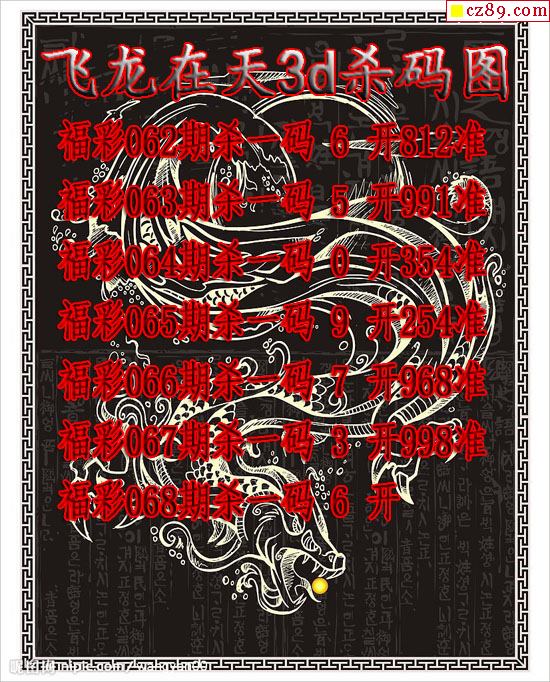 cz89.com
飞龙在天3d杀码图
福彩062期杀一码 6 开812准
福彩063期杀一码 5 开991准
福彩064期杀一码 0 开354准
福彩065期杀一码 9 开254准
福彩066期杀一码 7 开968准
福彩067期杀一码 3 开998准
福彩068期杀一码 6 开